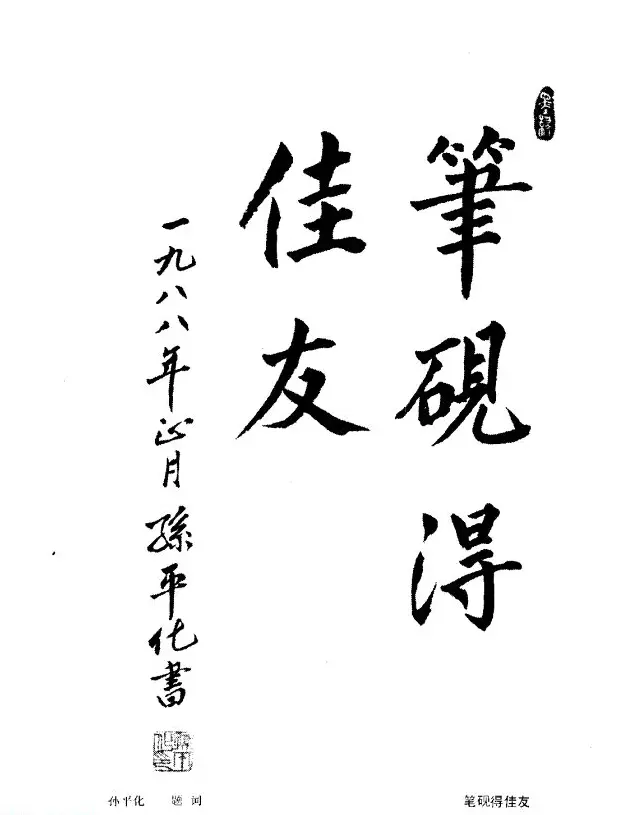 筆硯得
佳友
一九八八年正月孫平化書
孙平化 题词
笔砚得佳友